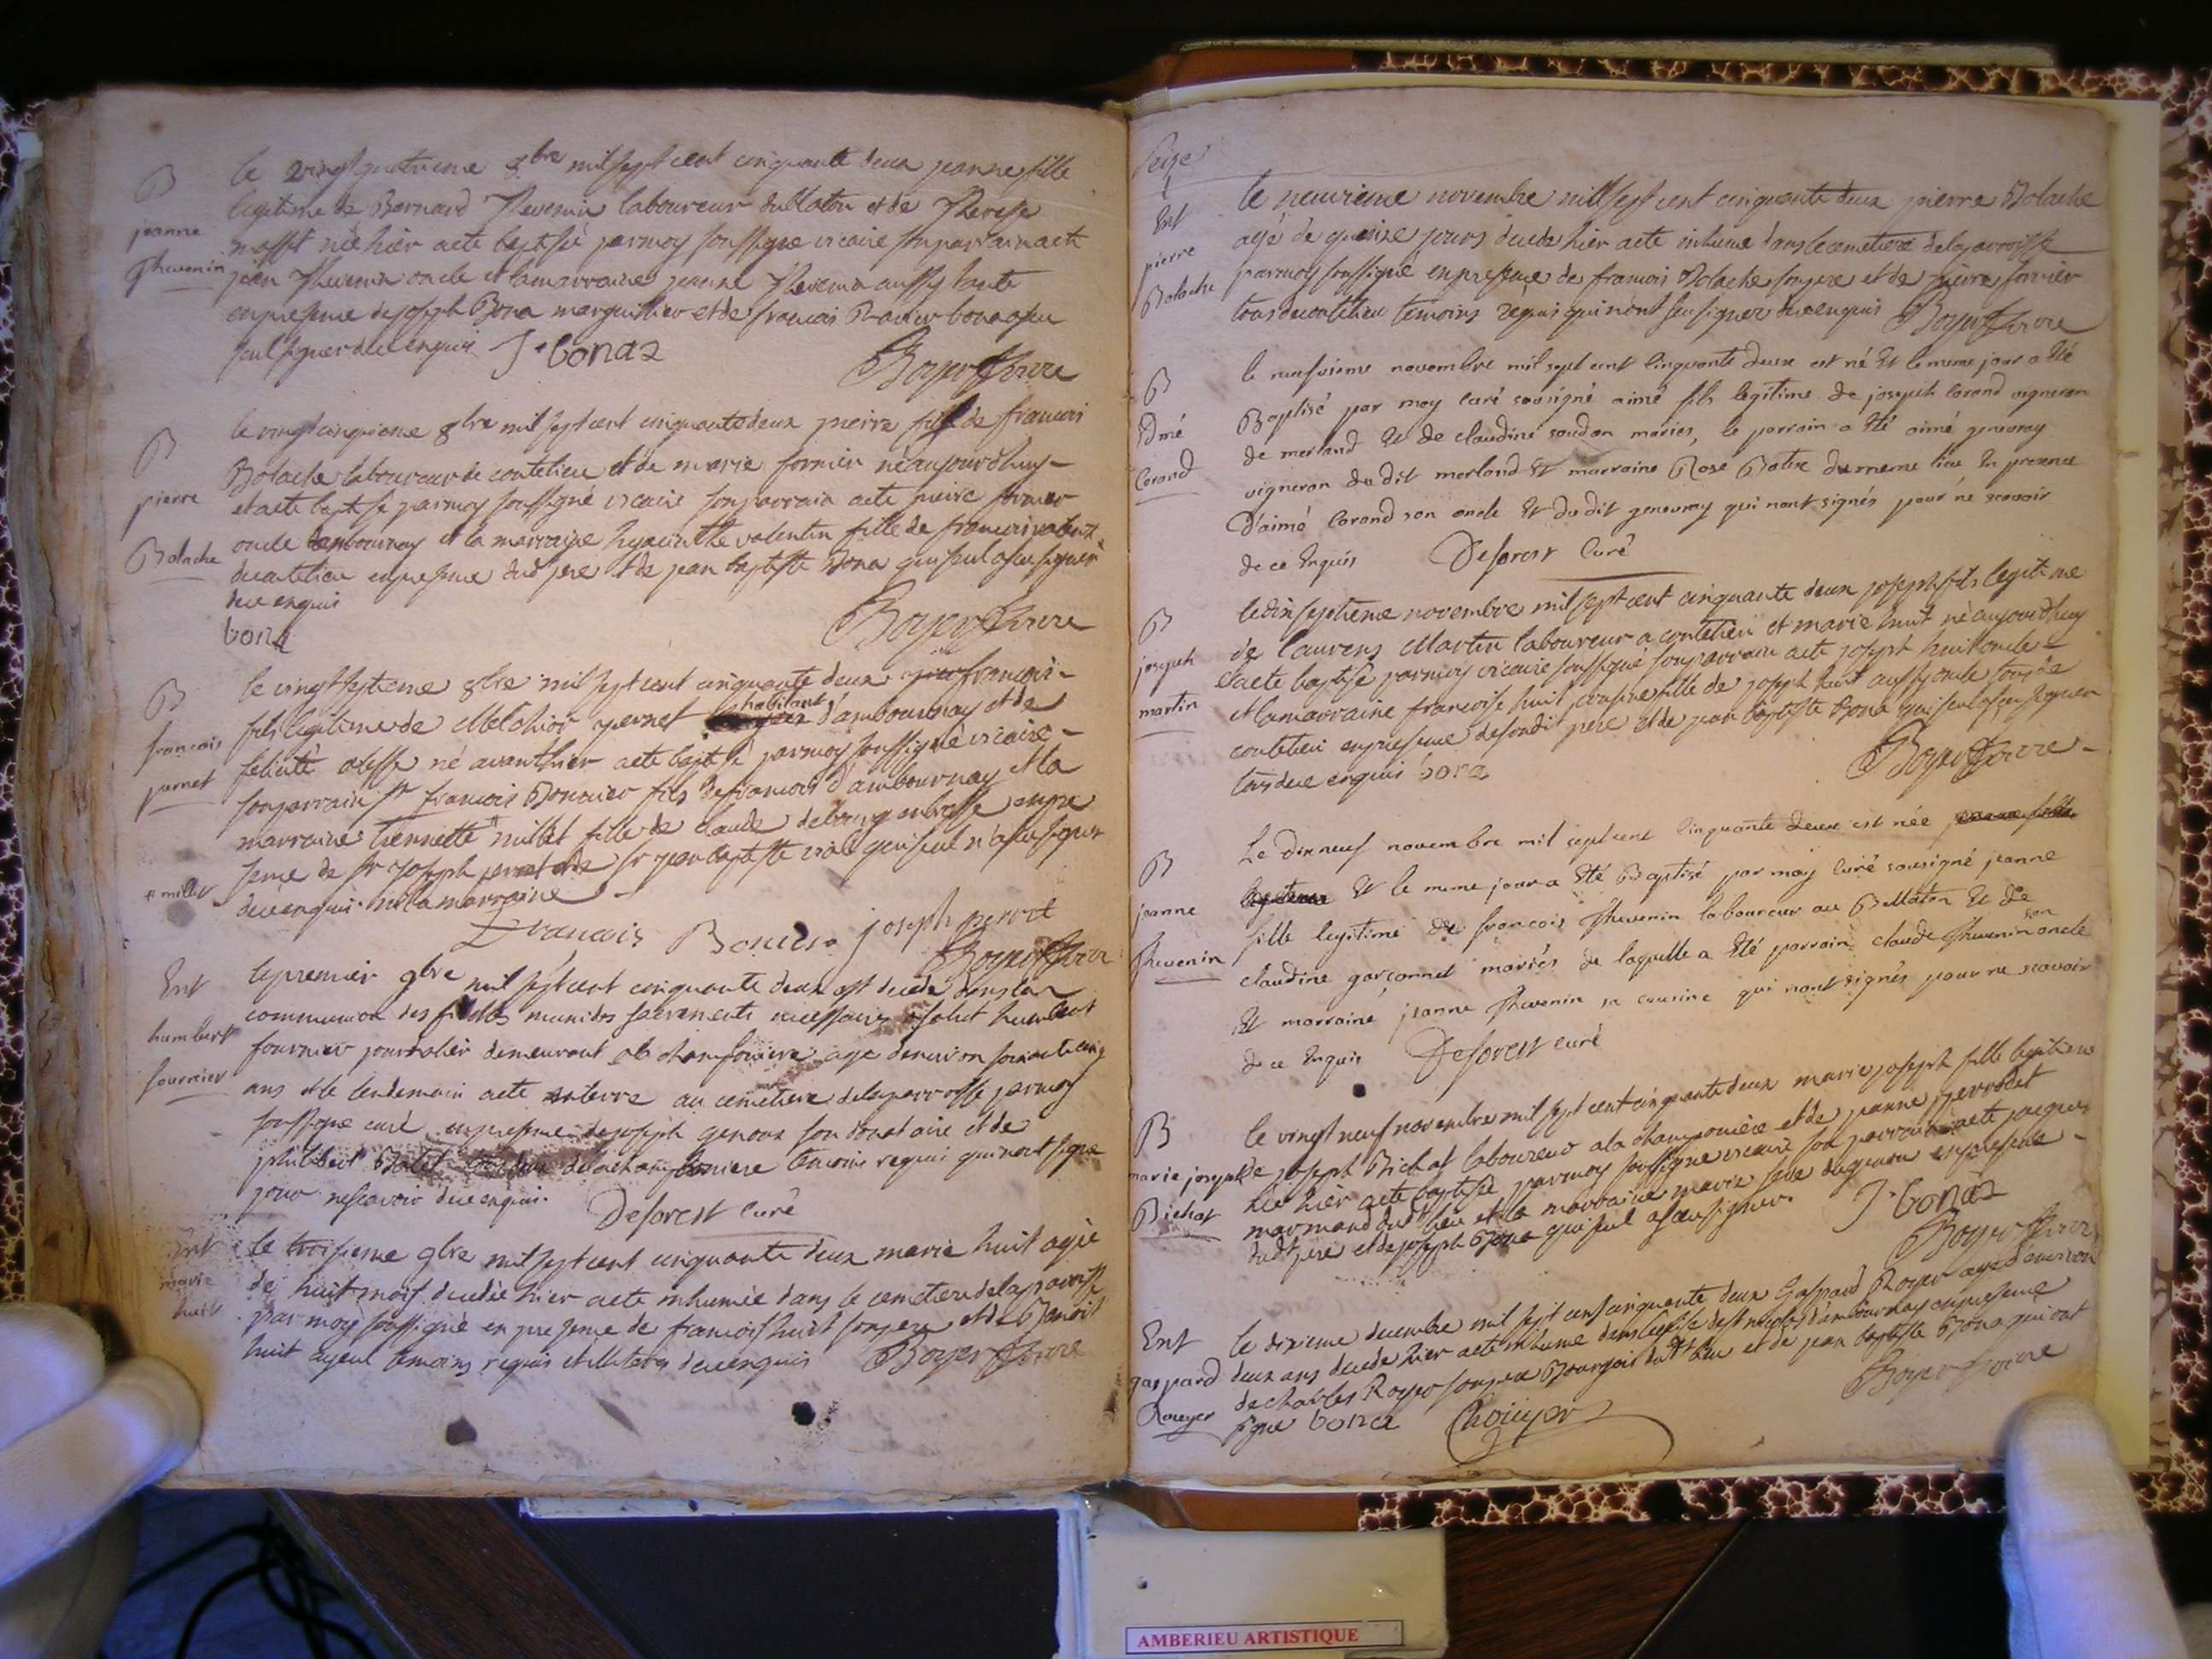 B
jeanne
Thevenin
le vingt quatrieme 8bre mil sept cent cinquante deux jeanne fille
legitime de Bernard Thevenin laboureur du Maton et de Therese
née hier aété baptisé par moy soussigné vicaire son parrain aété
jean Thevenin oncle et la marraine jeanne Thevenin aussy tante
en presence de joseph Bona marguillier et de francois bona a sçu
seul signer de ce enquis J. bonaz
Boyer Vicaire
B
pierre
Bolache
le vingt cinquieme 8bre mil sept cent cinquante deux pierre fils de francois
Bolache laboureur de contelieu et de marie fornier né aujourdhuy
et aété baptisé par moy soussigné vicaire son parrain aété pierre fornier
oncle dambournay et la marraine hyacinthe valentin fille de francois valent.
de contelieu en presence dud. pere et de jean baptiste Bona qui seul a sçu signer
de ce enquis
bona
Boyer Vicaire
B
francois
pernet
le vingt septieme 8bre mil sept cent cinquante deux francois
fils legitime de Melchior pernet habitant d'ambournay et de
felicité né avanthier aété baptisé par moy soussigné vicaire
son parrain sr francois Bonnier fils de francois d'ambournay et la
marraine # millet fille de claude de bourg en bresse en pre
sence de sr joseph pernet et de sr jean baptiste viale qui seul n'a sçu signer
de ce enquis ni la marraine
# millet
Francois Bonier joseph pernet
Boyer Vicaire
Ent
humbert
fournier
le premier 9bre mil sept cent cinquante deux est decedé dans la
communion des fidelles muni des sacrements necessaires a salut humbert
fournier journalier demeurant a la champoniere agé denviron soixante cinq
ans et le lendemain aété enterré au cemetiere de la parroisse par moy
soussigné curé en presence de joseph genoux son donataire et de
philibert de la champoniere temoins requis qui n'ont signé
pour ne scavoir de ce enquis.
Deforest curé
Ent
marie
huit
le troisieme 9bre mil sept cent cinquante deux marie huit agée
de huit mois decedée hier aété inhumée dans le cemetiere de la parroisse
par moy soussigné en presence de francois huit son pere et de Benoit
huit ayeul temoins requis et illiteres de ce enquis Boyer Vicaire
Seize
Ent
pierre
Bolache
le neuvieme novembre mil sept cent cinquante deux pierre Bolache
agé de quinze jours decedé hier aété inhumé dans le cemetiere de la parroisse
par moy soussigné en presence de francois Bolache son pere et de pierre fornier
tous de contelieu temoins requis qui n'ont sçu signer de ce enquis Boyer Vicaire
B
Edmé
Corand
le neufvieme novembre mil sept cent cinquante deux est né Et le meme jour a Eté
Baptisé par moy curé sousigné aimé fils legitime de joseph Corand vigneron
de merland Et de claudine soudan mariés, le parrain a Eté aimé genevray
vigneron du dit merland Et marraine Rose Batin du meme lieu En presence
d'aimé Corand son oncle Et du dit genevray qui n'ont signés pour ne scavoir
de ce Enquis Deforest Curé
B
joseph
martin
le dix septieme novembre mil sept cent cinquante deux joseph fils legitime
de laurens Martin laboureur a contelieu et marie huit né aujourdhuy
et aété baptisé par moy vicaire soussigné son parrain aété joseph huit oncle
et la marraine francoise huit cousine fille de joseph huit aussy oncle tous de
contelieu en presence de son dit pere et de jean baptiste Bona qui seul a sçu signer
tous de ce enquis bona
Boyer Vicaire
B
jeanne
Thevenin
Le dix neuf novembre mil sept cent Cinquante deux est née
Et le meme jour a Eté Baptisé par moy Curé sousigné jeanne
fille legitime de francois Thevenin laboureur au Bellaton Et de
claudine garçonnet mariés de laquelle a Eté parrain claude Thevenin son oncle
Et marraine jeanne Thevenin sa cousine qui n'ont signés pour ne scavoir
de ce Enquis Deforest curé
B
marie joseph
Bichat
le vingt neuf novembre mil sept cent cinquante deux marie joseph fille legitime
de joseph Bichat laboureur a la champoniere et de jeanne perrodet
née hier aété baptisée par moy soussigné vicaire son parrain aété jacques
marmand dud. lieu et la marraine marie en presence
dudt pere et de joseph Bona qui seul a sçeu signer. J. bonaz
Boyer Vicaire
Ent
gaspard
Royer
le dixieme decembre mil sept cent cinquante deux Gaspard Royer agé denviron
deux ans decedé hier aété inhumé dans leglise de st nicolas d'ambournay en presence
de charles Royer son pere Bourgois dudt lieu et de jean baptiste Bona qui ont
signé bona CRoüyer
Boyer Vicaire
AMBERIEU ARTISTIQUE